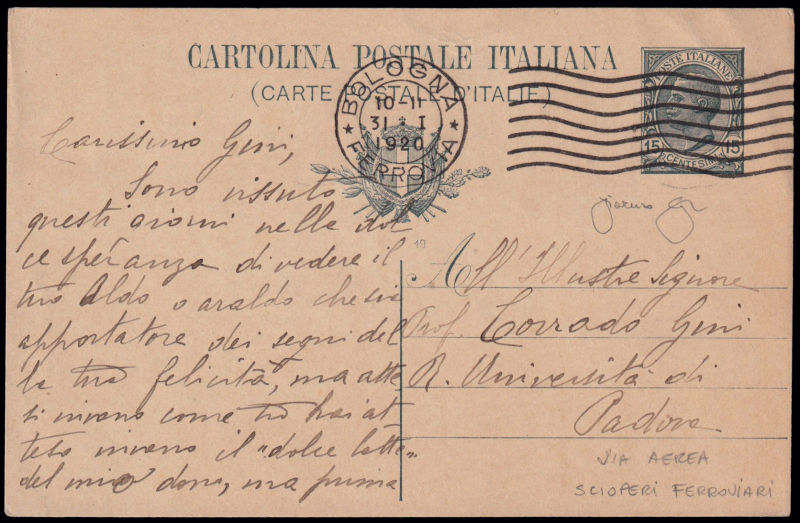 CARTOLINA POSTALE ITALIANA
(CARTE POSTALE D'ITALIE)
POSTE ITALIANE
15 CENTESIMI 15
BOLOGNA
10-11
31 · I
1920
FERROVIA
Carissimo Gini,
Sono vissuto
questi giorni nella dol
ce speranza di vedere il
tuo Aldo o araldo che sia
apportatore dei segni del
la tua felicità, ma atte
si invano come tu hai at
teso invano il "dolce latte"
del mio dono, ma prima
19
All'Illustre Signore
Prof. Corrado Gini
R. Università di
Padova
VIA AEREA
SCIOPERI FERROVIARI